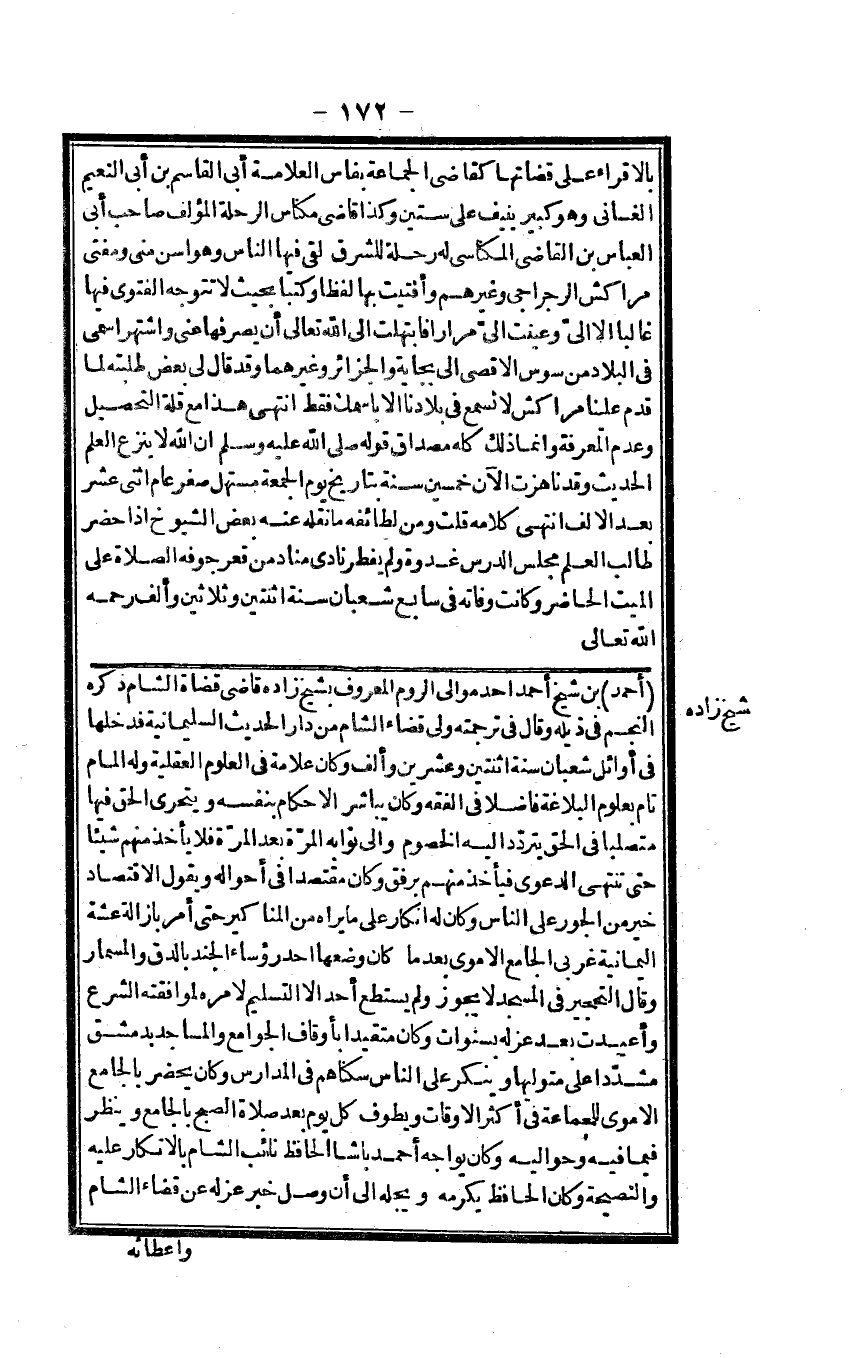 - ١٧٢ -
بالاقراء على قضاتها كقاضى الجماعة بفاس العلامة أبى القاسم بن أبى النعيم
الغسانى وهو كبير ينيف على ستين وكذا قاضى مكناس الرحلة المؤلف صاحب أبى
العباس بن القاضى المكناسى له رحلة للشرق لقى فيها الناس وهو اسن منى ومفتى
مراكش الرجراجى وغيرهم وأفتيت بها لفظا وكتبا بحيث لا تتوجه الفتوى فيها
غالبا الا الىّ وعينت الىّ مرارا فابتهلت الى الله تعالى أن يصرفها عنى واشتهر اسمى
فى البلاد من سوس الاقصى الى بجاية والجزائر وغيرهما وقد قال لى بعض طلبته لما
قدم علينا مراكش لا نسمع فى بلادنا الا باسمك فقط انتهى هذا مع قلة التحصيل
وعدم المعرفة وانما ذلك كله مصداق قوله صلى الله عليه وسلم ان الله لا ينزع العلم
الحديث وقد ناهزت الآن خمسين سنة بتاريخ يوم الجمعة مستهل صفر عام اثنى عشر
بعد الالف انتهى كلامه قلت ومن لطائفه ما نقله عنه بعض الشيوخ اذا حضر
طالب العلم مجلس الدرس غدوة ولم يفطر نادى مناد من قعر جوفه الصلاة على
الميت الحاضر وكانت وفاته فى سابع شعبان سنة اثنتين وثلاثين وألف رحمه
الله تعالى
(أحمد) بن شيخ أحمد احد موالى الروم المعروف بشيخ زاده قاضى قضاة الشام ذكره
شيخ زاده
النجم فى ذيله وقال فى ترجمته ولى قضاء الشام من دار الحديث السليمانية فدخلها
فى أوائل شعبان سنة اثنتين وعشرين وألف وكان علامة فى العلوم العقلية وله المام
تام بعلوم البلاغة فاضلا فى الفقه وكان يباشر الاحكام بنفسه ويتحرى الحق فيها
متصلبا فى الحق يتردّد اليه الخصوم والى نوابه المرّة بعد المرّة فلا يأخذ منهم شيئا
حتى تنتهى الدعوى فيأخذ منهم برفق وكان مقتصدا فى أحواله ويقول الاقتصاد
خير من الجور على الناس وكان له انكار على ما يراه من المناكير حتى أمر بازالة عشة
اليمانية غربى الجامع الاموى بعد ما كان وضعها احد رؤساء الجند بالدق والمسمار
وقال التحجير فى المسجد لا يجوز ولم يستطع أحد الا التسليم لامره لموافقته الشرع
وأعيدت بعد عزله بسنوات وكان متقيدا بأوقاف الجوامع والمساجد بدمشق
مشدّدا على متوليها وينكر على الناس سكناهم فى المدارس وكان يحضر بالجامع
الاموى للجماعة فى أكثر الاوقات ويطوف كل يوم بعد صلاة الصبح بالجامع وينظر
فيما فيه وحواليه وكان يواجه أحمد باشا الحافظ نائب الشام بالانكار عليه
والنصيحة وكان الحافظ يكرمه ويجله الى أن وصل خبر عزله عن قضاء الشام
واعطائه